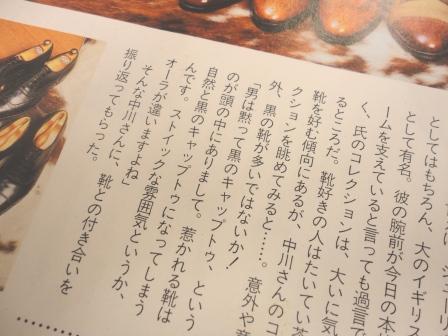 としてはもちろん、大のイギリス
として有名。彼の腕前が今日の本
ームを支えていると言っても過言で
く、氏のコレクションは、大いに気
るところだ。靴好きの人はたいてい茶
靴を好む傾向にあるが、中川さんのコ
クションを眺めてみると……。意外や意
外、黒の靴が多いではないか!
「男は黙って黒のキャップトゥ、という
のが頭の中にありまして。惹かれる靴は
自然と黒のキャップトゥになってしまう
んです。ストイックな雰囲気というか、
オーラが違いますよね」
そんな中川さんに、靴との付き合いを
振り返ってもらった。